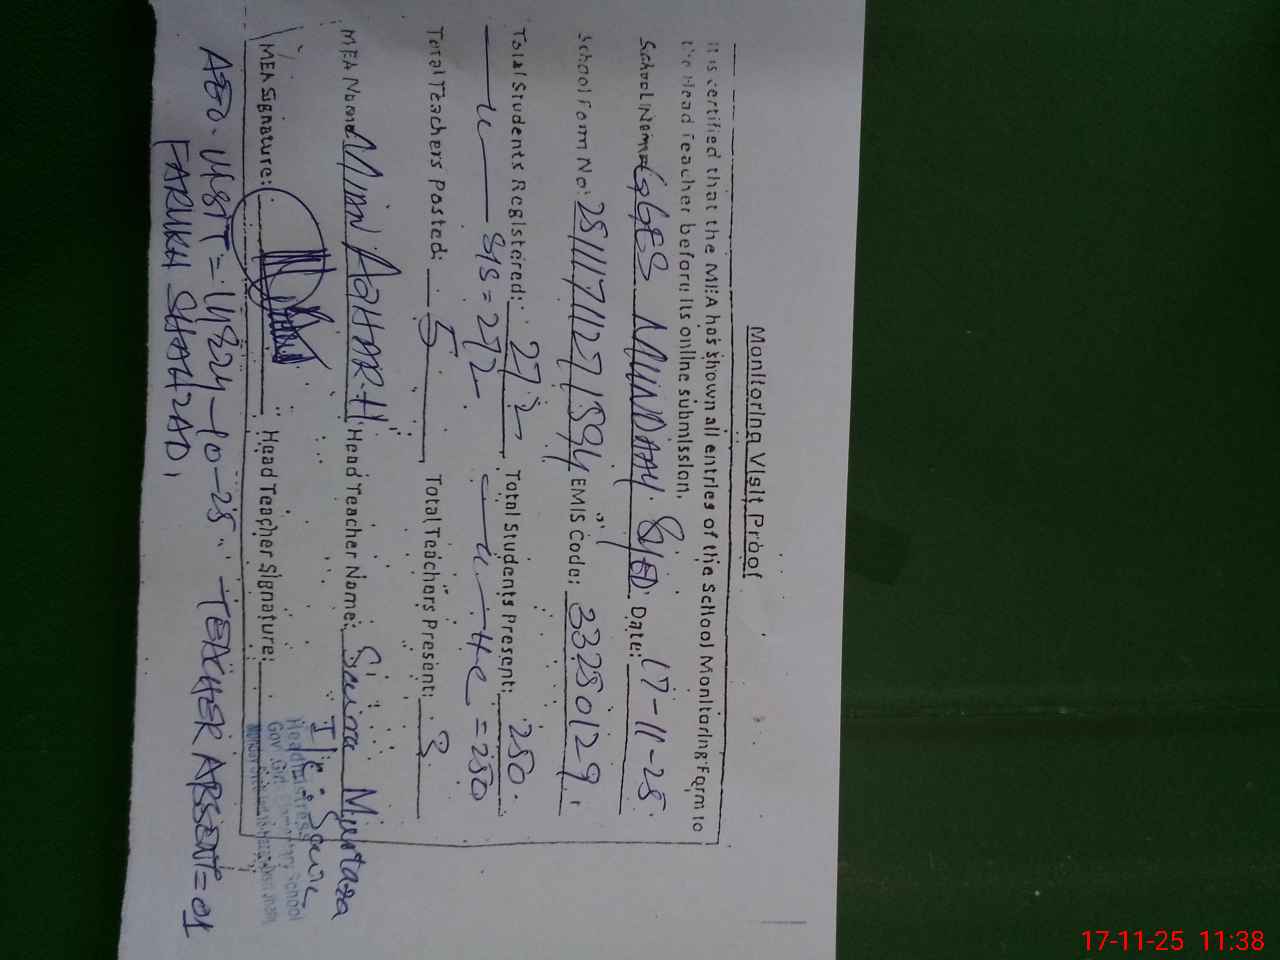 Monitoring Visit Proof
It is certified that the MEA has shown all entries of the School Monitoring Form to
the Head Teacher before its online submission.
School Name: GGES MUNDAAY SYED Date: 17-11-25
School Form No: 25111711271594 EMIS Code: 33250129
Total Students Registered: 272 Total Students Present: 250
SIS = 272 = 250
Total Teachers Posted: 5 Total Teachers Present: 3
MEA Name: MIAN AZHAR H Head Teacher Name: Saima Mumtaza
MEA Signature: Head Teacher Signature:
I/C
Headmistress
Gov. Girl Elementary School
AEO. VISIT = 14 & 24-10-25 TEACHER ABSENT = 01
FARUKH SHAHZAD
17-11-25 11:38